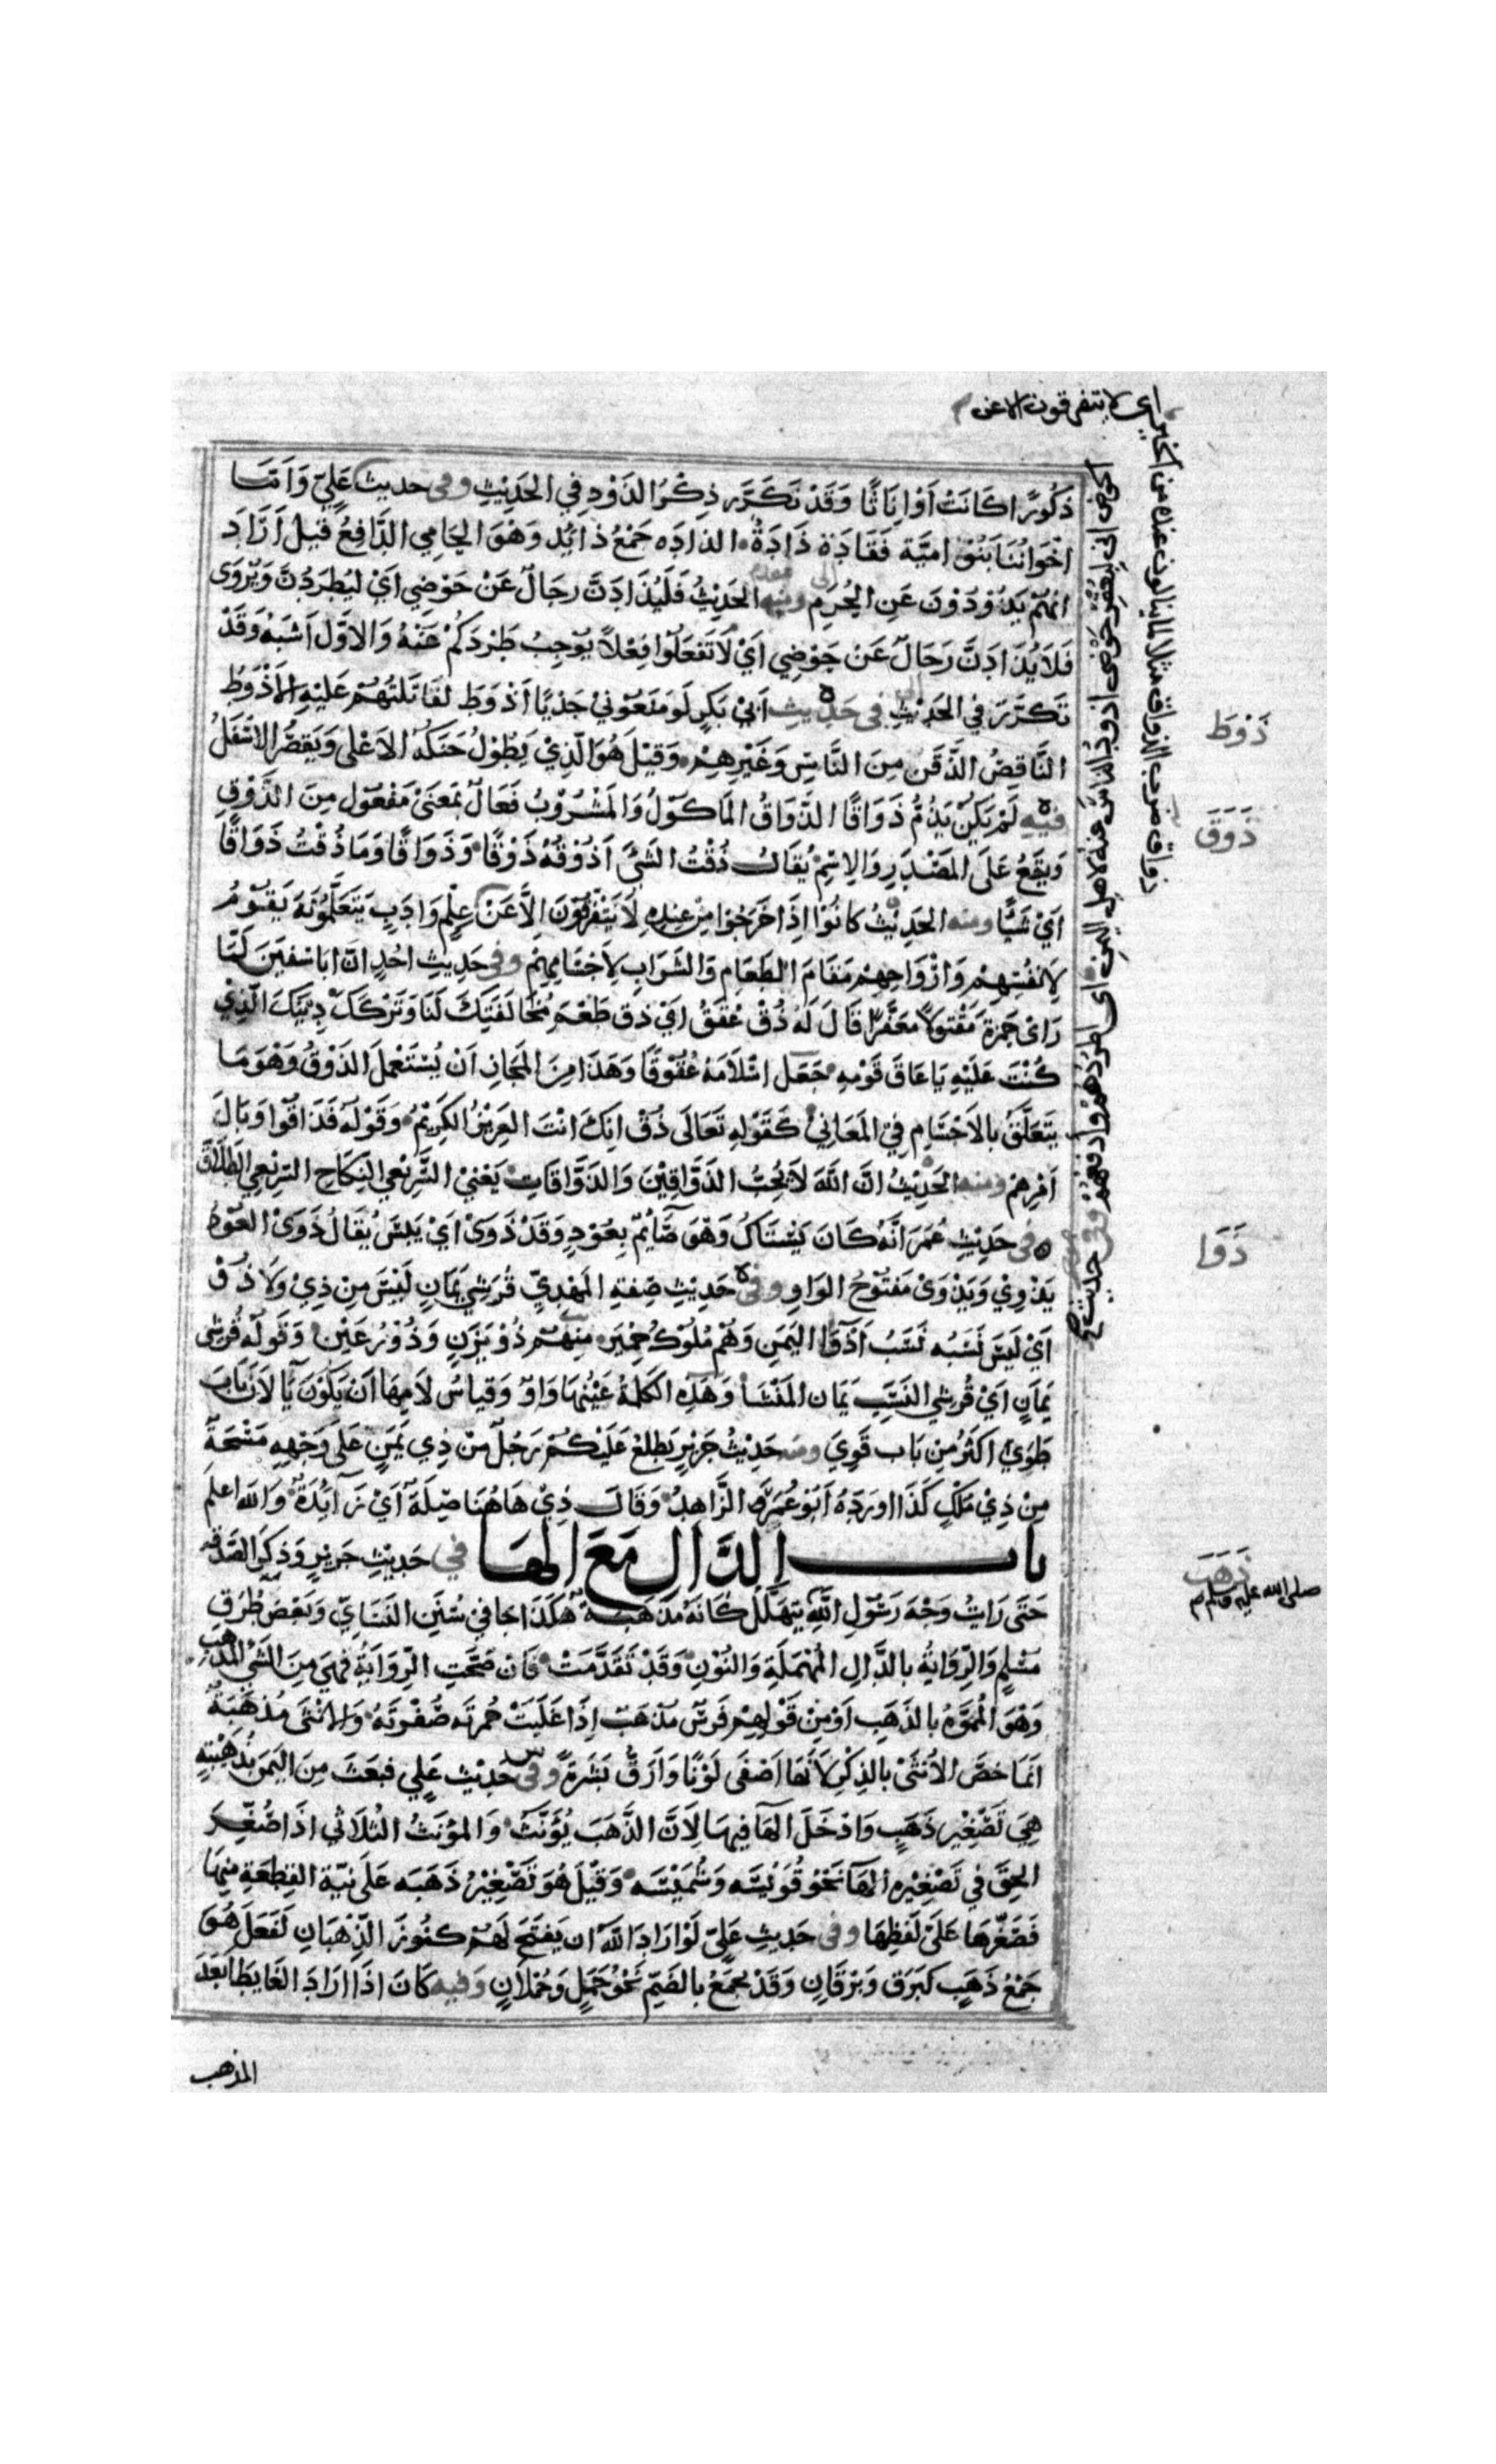 اي لا يتفرقون الا عن
ذُكُورًا كَانَتْ اَوْ اِنَاثًا وَقَدْ تَكَرَّرَ ذِكْرُ الذَوْدِ فِي الحَدِيْثِ وفى حديث عَلِيّ وَاَمَّا
اخْوَانُنَا بَنُوْ امَيَّة فَقَادَة ذَادَةٌ الذادَه جَمْعُ ذائِد وَهْوَ الحَامِي الدَّافِعُ قيلَ اَرَادَ
انهُمْ يَذُوْدُوْنَ عَنِ الحُرَمِ ومنه الحَدِيْثُ فَلَيُذَادَنَّ رِجَالٌ عَنْ حَوْضِي اَيْ لَيُطْرَدُنَّ وَيُرْوَى
فَلَا يُذَادَنَّ رِجَالٌ عَنْ حَوْضِي اَيْ لَا تَفْعَلُوا فِعْلاً يُوْجِبُ طَرْدَكُمْ عَنْهُ وَالاَوَّلُ اَشْبَهُ وَقَدْ
تَكَرَّرَ في الحَدِيْثِ فى حَدِيثِ اَبِيْ بَكرٍ لَوْ مَنَعُوْنِيْ جَدْيًا اَذْوَطَ لقَاتَلْتهُمْ عَلَيْهِ الاَذْوَطُ
النَّاقِصُ الذَّقَنِ مِنَ النَّاسِ وَغَيْرِهِمْ وَقيْلَ هُوَ الَّذِيْ يَطُوْلُ حَنَكُهُ الاَعْلى وَيَقصُرُ الاَسْفَلُ
فيْهِ لَمْ يَكنْ يَذُمُّ ذَوَاقًا الذَّوَاقُ المَاكُوْلُ وَالمَشْرُوْبُ فَعَالٌ بمَعنَى مَفْعُوْلٍ مِنَ الذَّوْقِ
وَيَقَعُ عَلَى المَصْدَرِ وَالِاسْمِ يُقَالُ ذُقْتُ الشَيْ اَذُوْقُهُ ذَوْقًا وَذَوَاقًا وَمَا ذُقْتُ ذَوَاقًا
اَيْ شَيًا ومنه الحَدِيْثُ كانُوْا اِذَا خَرَجُوا مِنْ عِنْدِهِ لَا يَتَفَرَّقُوْنَ اِلَّا عَنْ عِلْمٍ وَادَبٍ يَتَعَلَّمُوْنَهُ يَقُوْمُ
لِاَنفُسِهِمْ وَازْوَاجِهِمْ مَقَامَ الطَعَامِ وَالشَرَابِ لِاَجْسَامِهِمْ وفى حَدِيثِ احُدٍ انَّ ابَا سُفيَنَ لَمَّا
رَاىْ حَمزَةَ مَقْتُولًا مُعَفَّرًا قَالَ لَهُ ذُقْ عُقَقُ ايْ ذق طَعْمَ مُخَالَفَتِكَ لَنَا وَتَرْكَكَ دِيْنَكَ الَّذِيْ
كُنْتَ عَلَيْهِ يَا عَاقَ قَوْمِهِ جَعَل اسْلاَمَهُ عُقُوْقًا وَهَذَا مِنَ المَجَازِ اَنْ يُسْتَعْمَلَ الذَوْقُ وَهْوَ مَا
يَتَعَلَّقُ بالاَجْسَامِ فِيْ المَعَانِيْ كَقَوْلِهِ تَعَالَى ذُقْ انِكَ انْتَ العَزِيْزُ الكَرِيْمُ وَقَوْلِه فَذَاقُوا وَبَالَ
اَمْرِهِمْ ومنه الحَدِيْثُ انَّ اللَّهَ لَا يُحِبُّ الذَوَّاقِيْنَ وَالذَوَّاقَاتِ يَعْنِيْ السَّرِيْعِي النِكَاحِ السَرِيْعِي الطَلَاقِ
فى حَدِيْثِ عُمَرَ اَنَّهُ كَانَ يَسْتَاكُ وَهْوَ صَآئِمٌ بِعُوْدٍ وَقَدْ ذَوَىْ اَيْ يَبِسَ يُقَالُ ذَوَىْ العُوْدُ
يَذْوِيْ وَيَذْوَىْ مَفْتُوْحُ الوَاوِ وفى حَدِيْثِ صِفَةِ المَهْدِيّ قُرَشِيٌ يَمَانٍ لَيْسَ مِنْ ذِيْ وَلَا ذُوْ
اَيْ لَيْسَ نَسَبُه نَسَبُ اَذْوَآءِ اليَمَنِ وَهُمْ مُلُوْكُ حِمْيَر مِنهُمْ ذُوْ يَزَنٍ وَذُوْ رُعَيْنٍ وَقَوْلُه قُرَشِى
يَمَانٍ اَيْ قُرَشِي النَسَبِ يَمَان المَنْشَا وَهَذِهِ الكَلِمَةُ عَيْنُهَا وَاوٌ وَقيَاسُ لَامِهَا اَنْ يَكُوْنَ يَآ لاَنَّ بَابَ
طَوَىْ اكثَرُ مِنْ بَاب قَوِيَ ومنه حَدِيْثُ جَرِيْرٍ يَطلعُ عَلَيْكُمْ رَجُلٌ مِنْ ذِي يَمَنٍ عَلَى وَجْهِهِ مَسْحَةٌ
مِنْ ذِيْ مَلَكٍ كَذَا اورَدَهُ اَبُوْ عُمَرَ الزَّاهِدُ وَقَالَ ذِيْ هَاهُنَا صِلَةٌ اَيْ زَآئِدَةٌ وَاللّه اعلم
باب الذَّالِ مَعَ الهَا في حَدِيْثِ جَرِيْرٍ وَذِكْرِ الصَّدَقه
حَتَى رَايْتُ وَجْهَ رَسُوْلِ اللَّهِ يَتَهَلَّلُ كَانَهُ مُذْهَبَةٌ هَكَذَا جَا في سُنَنِ النَسَايّ وَبَعْضِ طُرُقِ
مُسْلِمٍ وَالرِّوَايَةُ بالدَّالِ المُهْمَلَةِ وَالنُوْنِ وَقَدْ تَقَدَّمَتْ فَانْ صَحَّتِ الرِّوَايَةُ فهِيَ مِنَ الشَيْ المُذْهَبِ
وَهْوَ المُمَوَّهُ بالذَهَبِ اَوْ مِنْ قَوْلِهِمْ فَرَسٌ مُذْهَبٌ اِذَا عَلَتْ حُمرَتَه صُفْرَتُهُ وَالانْثَى مُذهَبَةٌ
انمَا خَصَّ الاُنثَىْ بالذِكْرِ لاَنَّهَا اَصْفَى لَوْنًا وَاَرَقُّ بَشَرَةً وفى حَدِيْثِ عَلِي فبَعَثَ مِنَ اليَمَنِ بذُهَيْبَةٍ
هِيَ تَصْغِيْر ذَهَبٍ وَادْخَلَ الهَآ فيهَا لِاَنَّ الذَّهَبَ يُؤَنَّثُ وَالمؤنثُ الثُلاَثي اذَا صُغِّرَ
الحِقَ في تَصْغِيْرِهِ الهَآ نَحْوُ قُوَيْسَه وَشُمَيْسَه وَقيْلَ هُوَ تَصْغِيْرُ ذَهَبَه عَلَى نيَّة القِطعَةِ مِنهَا
فَصَغَّرَهَا عَلَىْ لَفظِهَا وفى حَدِيثِ عَليّ لَوْ ارَادَ اللَّهُ ان يَفتَحَ لَهُمْ كُنُوزَ الذِّهْبَانِ لَفَعَلَ هُوَ
جَمْعُ ذَهَبٍ كبَرَق وَبرْقَانٍ وَقَدْ يجمَعُ بالضَمِّ نَحْوُ حَمَلٍ وَحُمْلاَنٍ وَفيه كَانَ اذَا ارَادَ الغَايِطَ ابْعَدَ
المذهب
ذَوَاق ضرب الذواق مثلا لما ينالون عنده من الخير
الحوض اني لبعقر حوضى اذود الناس عنه لاهل اليمن اى اطردهم وادفعهم وفى حديث
ذَوْط
ذَوَقَ
ذَوَا
ذَهَبَ
صلى الله عليه وسلم